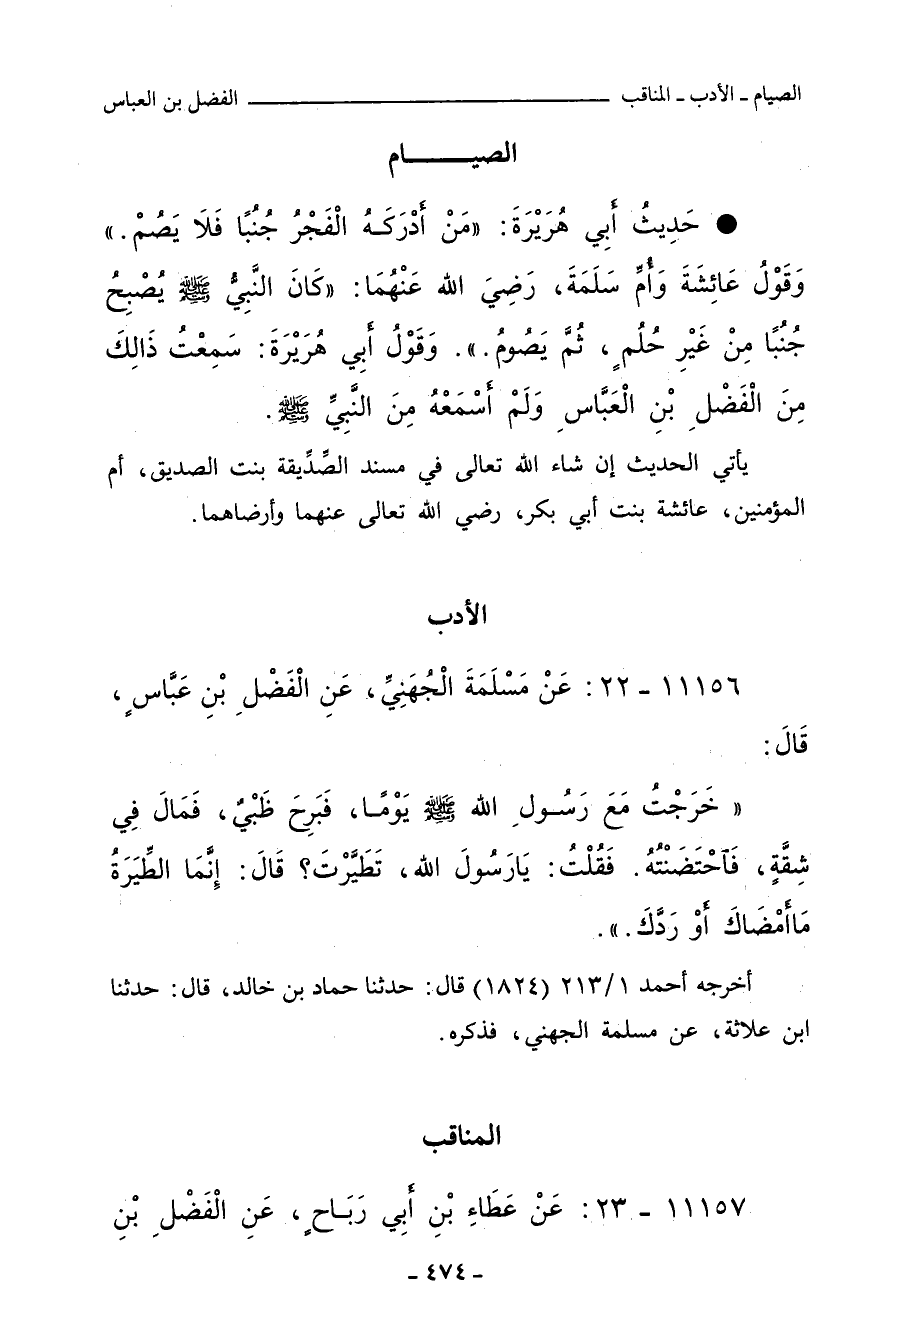 الصيام ـ الأدب ـ المناقب ــــــــــــــــــــ الفضل بن العباس
الصيـــــــام
● حَدِيثُ أَبِي هُرَيْرَةَ: «مَنْ أَدْرَكَـهُ الْفَجْرُ جُنُبًا فَلَا يَصُمْ.»
وَقَوْلُ عَائِشَةَ وَأُمِّ سَلَمَةَ، رَضِيَ الله عَنْهُمَا: «كَانَ النَّبِيُّ ﷺ يُصْبِحُ
جُنُبًا مِنْ غَيْرِ حُلُمٍ، ثُمَّ يَصُومُ.». وَقَوْلُ أَبِي هُرَيْرَةَ: سَمِعْتُ ذَالِكَ
مِنَ الْفَضْلِ بْنِ الْعَبَّاسِ وَلَمْ أَسْمَعْهُ مِنَ النَّبِيِّ ﷺ.
يأتي الحديث إن شاء الله تعالى في مسند الصِّدِّيقة بنت الصديق، أم
المؤمنين، عائشة بنت أبي بكر، رضي الله تعالى عنهما وأرضاهما.
الأدب
١١١٥٦ ـ ٢٢: عَنْ مَسْلَمَةَ الْجُهَنِيِّ، عَنِ الْفَضْلِ بْنِ عَبَّاسٍ،
قَالَ:
« خَرَجْتُ مَعَ رَسُـولِ الله ﷺ يَوْمًـا، فَبَرِحَ ظَبْيٌ، فَمَالَ فِي
شِقَّةٍ، فَآحْتَضَنْتُهُ. فَقُلْتُ: يَارَسُولَ الله، تَطَيَّرْتَ؟ قَالَ: إِنَّمَا الطِّيَرَةُ
مَاأَمْضَاكَ أَوْ رَدَّكَ.».
أخرجه أحمد ٢١٣/١ (١٨٢٤) قال: حدثنا حماد بن خالد، قال: حدثنا
ابن علاثة، عن مسلمة الجهني، فذكره.
المناقب
١١١٥٧ ـ ٢٣: عَنْ عَطَاءِ بْنِ أَبِي رَبَـاحٍ، عَنِ الْفَضْلِ بْنِ
ـ ٤٧٤ ـ